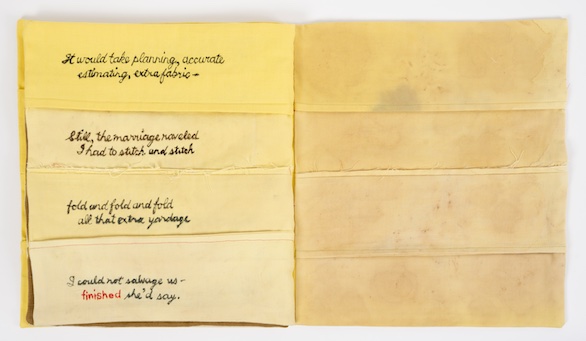 It would take planning, accurate
estimating, extra fabric—
Still, the marriage raveled
I had to stitch and stitch
fold and fold and fold
all that extra yardage
I could not salvage us—
finished she'd say.